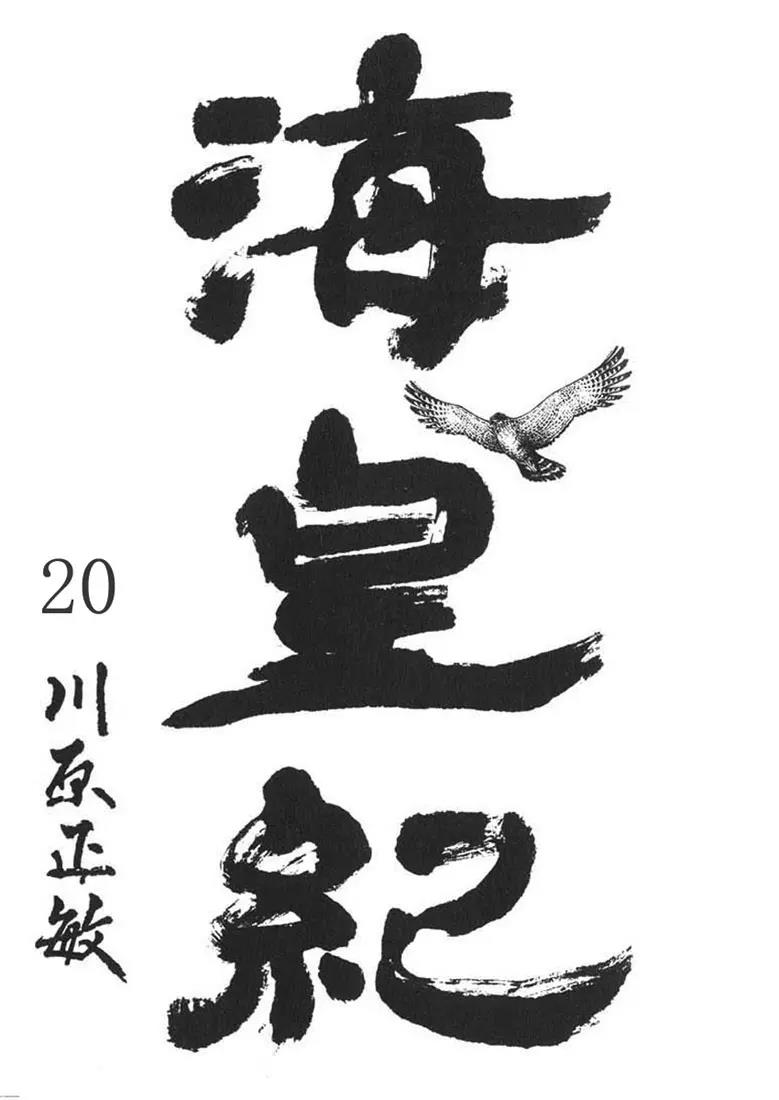 海皇紀
20
川原正敏